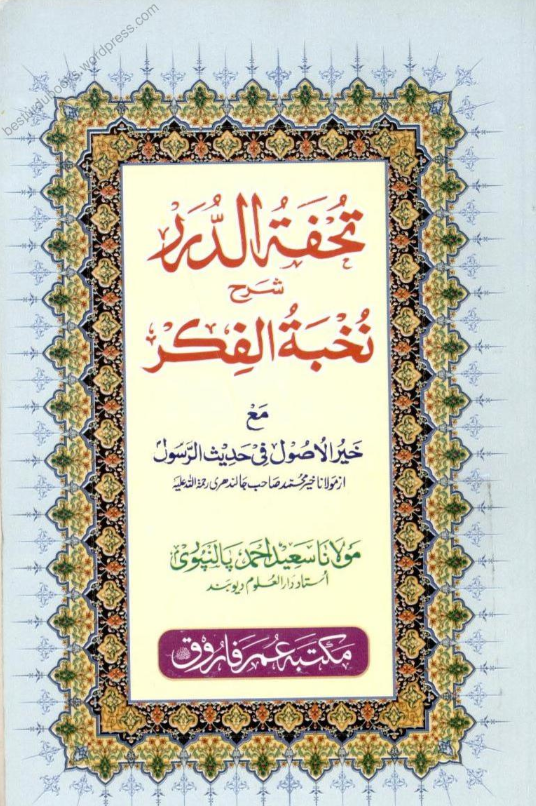 besturdubooks.wordpress.com
تُحْفَةُ الدُّرَر
شَرح
نُخْبَةُ الفِكَر
مَعَ
خَيْرُ الاُصُول فِی حَدِیْثِ الرَّسُوْل
از مولانا خیر محمد صاحب جالندھری رحمۃ اللہ علیہ
مَولانا سَعِید احمد پالنپوری
اُستاد دار العلوم دیوبند
مکتبہ عمر فاروق